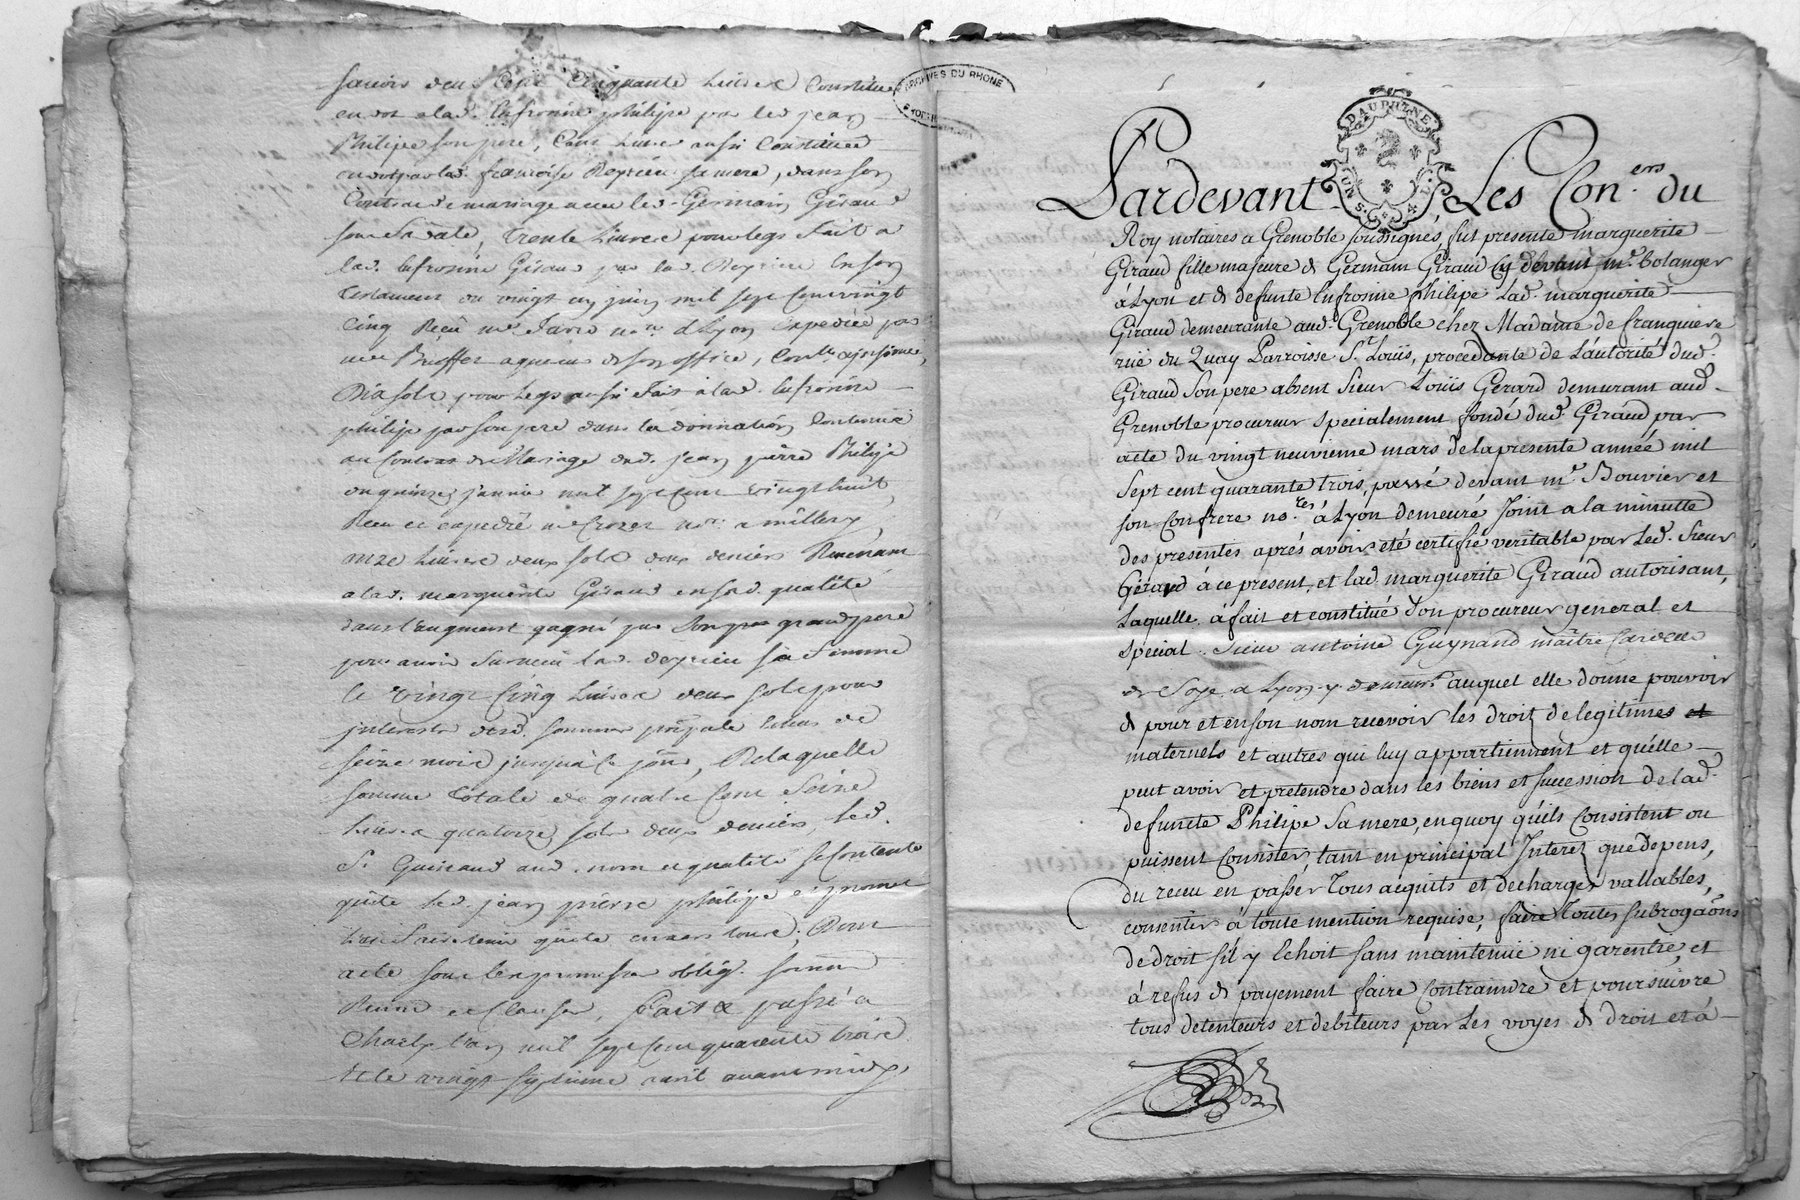 savoir deux Cent Cinquante Livres Constituée
en dot a lad. Eufrosine philipe par led. jean
Philipe son pere, Cent Livres aussi Constituée
en dot par lad. françoise Reyrieu sa mere, dans son
Contrat de mariage avec led. Germain Giraud
sous sa date, trente Livres pour legs fait a
lad. Eufrosine Giraud par lad. Reyrieu En son
testament du vingt un juin mil sept cent vingt
Cinq Receu me. favre nore. a Lyon Expedié par
me. acquereur de son office,
Dix sols pour legs aussi fait a lad. Eufrosine
philipe par son pere dans la donnation Contenue
au Contrat de Mariage dud. jean pierre Philipe
du quinze janvier mil sept cent vingt huit,
Receu et expedié me Crozet nore. a millery,
onze Livres deux sols deux deniers Revenant
a lad. marguerite Giraud en sad. qualité
dans l'augment gagné par son grand pere
pour avoir survecu lad. Reyrieu sa femme
le vingt Cinq Livres deux sols pour
interests desd. sommes prpale lieux de
seize mois jusqu'a ce jour, De laquelle
somme totale de quatre Cent Seize
Livres quatorze sols deux deniers, led.
Sr. Guinand aud. nom et qualité se Contente
quite led. jean pierre philipe et promet
l'en faire tenir quite envers tous, Dont
acte sous les promesses oblig. soum.
Renon et Clauses, fait & passé a
Charly l'an mil sept Cent quarente trois
& le vingt septieme avril avant midy,
ARCHIVES DU RHONE
DAUPHINE
UN S. 4 D.
Pardevant Les Con.ers du
Roy notaires a Grenoble soussignés, fut presente marguerite
Giraud fille majeure de Germain Giraud cy devant me. bolanger
à Lyon et de defunte Eufrosine philipe Lad. marguerite
Giraud demeurante aud. Grenoble chez Madame de franquiere
rüe du Quay Parroisse St. Loüis, procedante de L'autorité dud.
Giraud son pere absent Sieur Loüis Gerard demurant aud.
Grenoble procureur specialement fondé dud. Giraud par
acte du vingt neuvieme mars de la presente année mil
sept cent quarante trois, passé devant me. Bouvier et
son confrere no.res à Lyon demeuré Joint a la minutte
des presentes aprés avoir eté certifié veritable par Led. Sieur
Gerard à ce present, et lad. marguerite Giraud autorisant,
Laquelle à fait et constitué son procureur general et
special Sieur antoine Guynand maître
de Soye a Lyon y demeurt. auquel elle donne pouvoir
de pour et en son nom recevoir les droit de legitimes et
maternels et autres qui luy appartiennent et qu'elle
peut avoir et pretendre dans les biens et succession de lad.
defunte Philipe Sa mere, en quoy qu'ils Consistent ou
puissent Consister, tant en principal Interez que depens,
du receu en passer Tous acquits et decharges vallables,
consentir à toute mention requise, faire Toutes subrogãons
de droit s'il y Echoit sans maintenüe ni garentie, et
à refus de payement faire Contraindre et poursuivre
tous detenteurs et debiteurs par Les voyes de droit et à